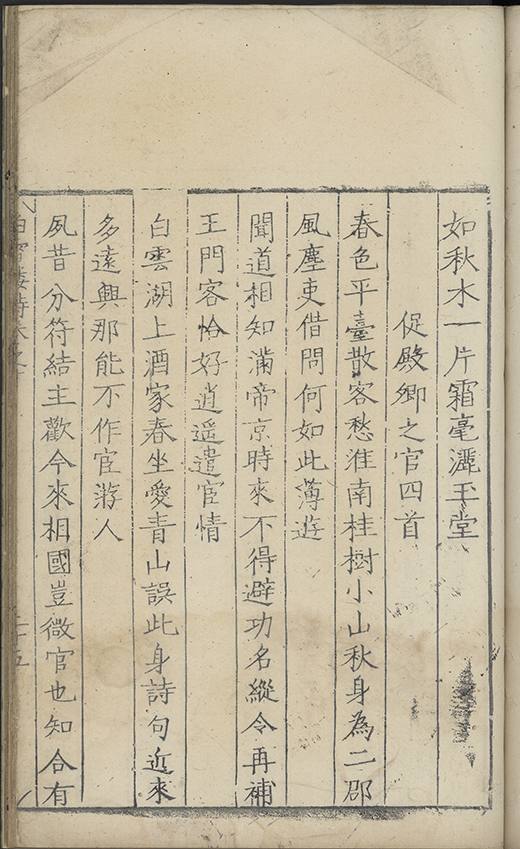 如秋水一片霜毫灑玉堂
促殿卿之官四首
春色平臺散客愁淮南桂樹小山秋身為二郡
風塵吏借問何如此薄遊
聞道相知滿帝京時來不得避功名縱令再補
王門客恰好逍遥遣宦情
白雲湖上酒家春坐愛青山誤此身詩句近來
多遠興那能不作宦游人
夙昔分符結主歡今來相國豈微官也知合有